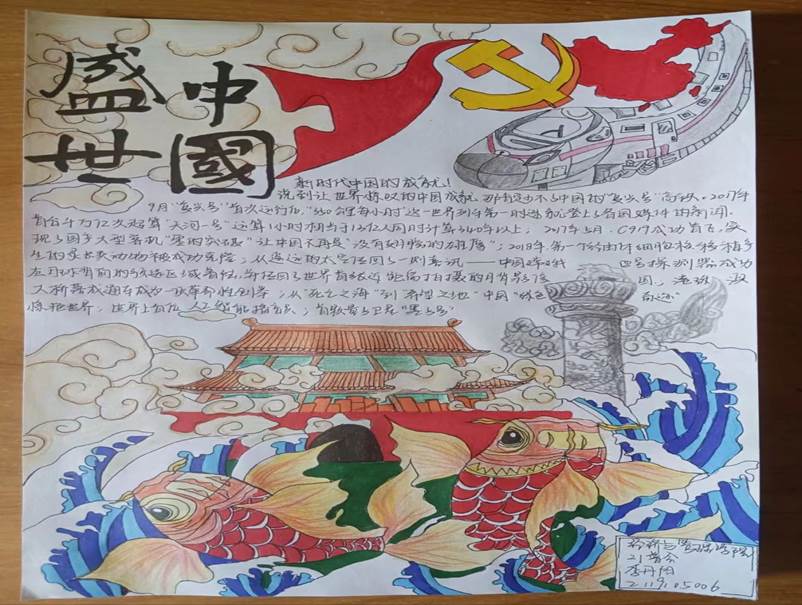 盛世
中國
新时代中国的成就!
说到让世界惊叹的中国成就 那肯定少不了中国的"复兴号"高铁。2017年
9月"复兴号"首次运行后,"350公里每小时"这一世界列车第一时速就登上了各国媒体的新闻
首台千万亿次超算"天河一号"运算1小时相当于13亿人同时计算340年以上;2017年5月,C919成功首飞,实
现了国产大型客机"零的突破"让中国不再是"没有翅膀的雄鹰";2018年,第一个经由体细胞核移植诞
生的灵长类动物被成功克隆;从遥远的太空传回了一则喜讯——中国嫦娥四号探测器成功
在月球背面的预选区域着陆,并传回了世界首张近距离拍摄的月背影像图,港珠澳
大桥 从"死亡之海"到"希望之地"中国"绿色奇迹"
惊艳世界;世界上首位人工智能
21
李丹阳
2119105006